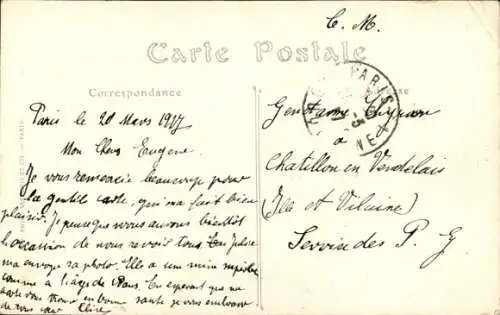 C. M.
Carte Postale
Correspondance
Adresse
PARIS
Paris le 20 Mars 1917
Mon Cher Eugène
Je vous remercie beaucoup pour
la gentil carte, qui m'a fait bien
plaisir. Je pense que nous aurons bientôt
l'occasion de nous revoir tous
ma envoyé sa photo. Elle a une mine superbe
comme à l'âge de ans. En esperant que ma
carte vous trouve en bonne santé je vous embrasse
de tout cœur Claire
Gendarme
à
Chatillon en Vendelais
(Ile et Vilaine)
Service des P. G